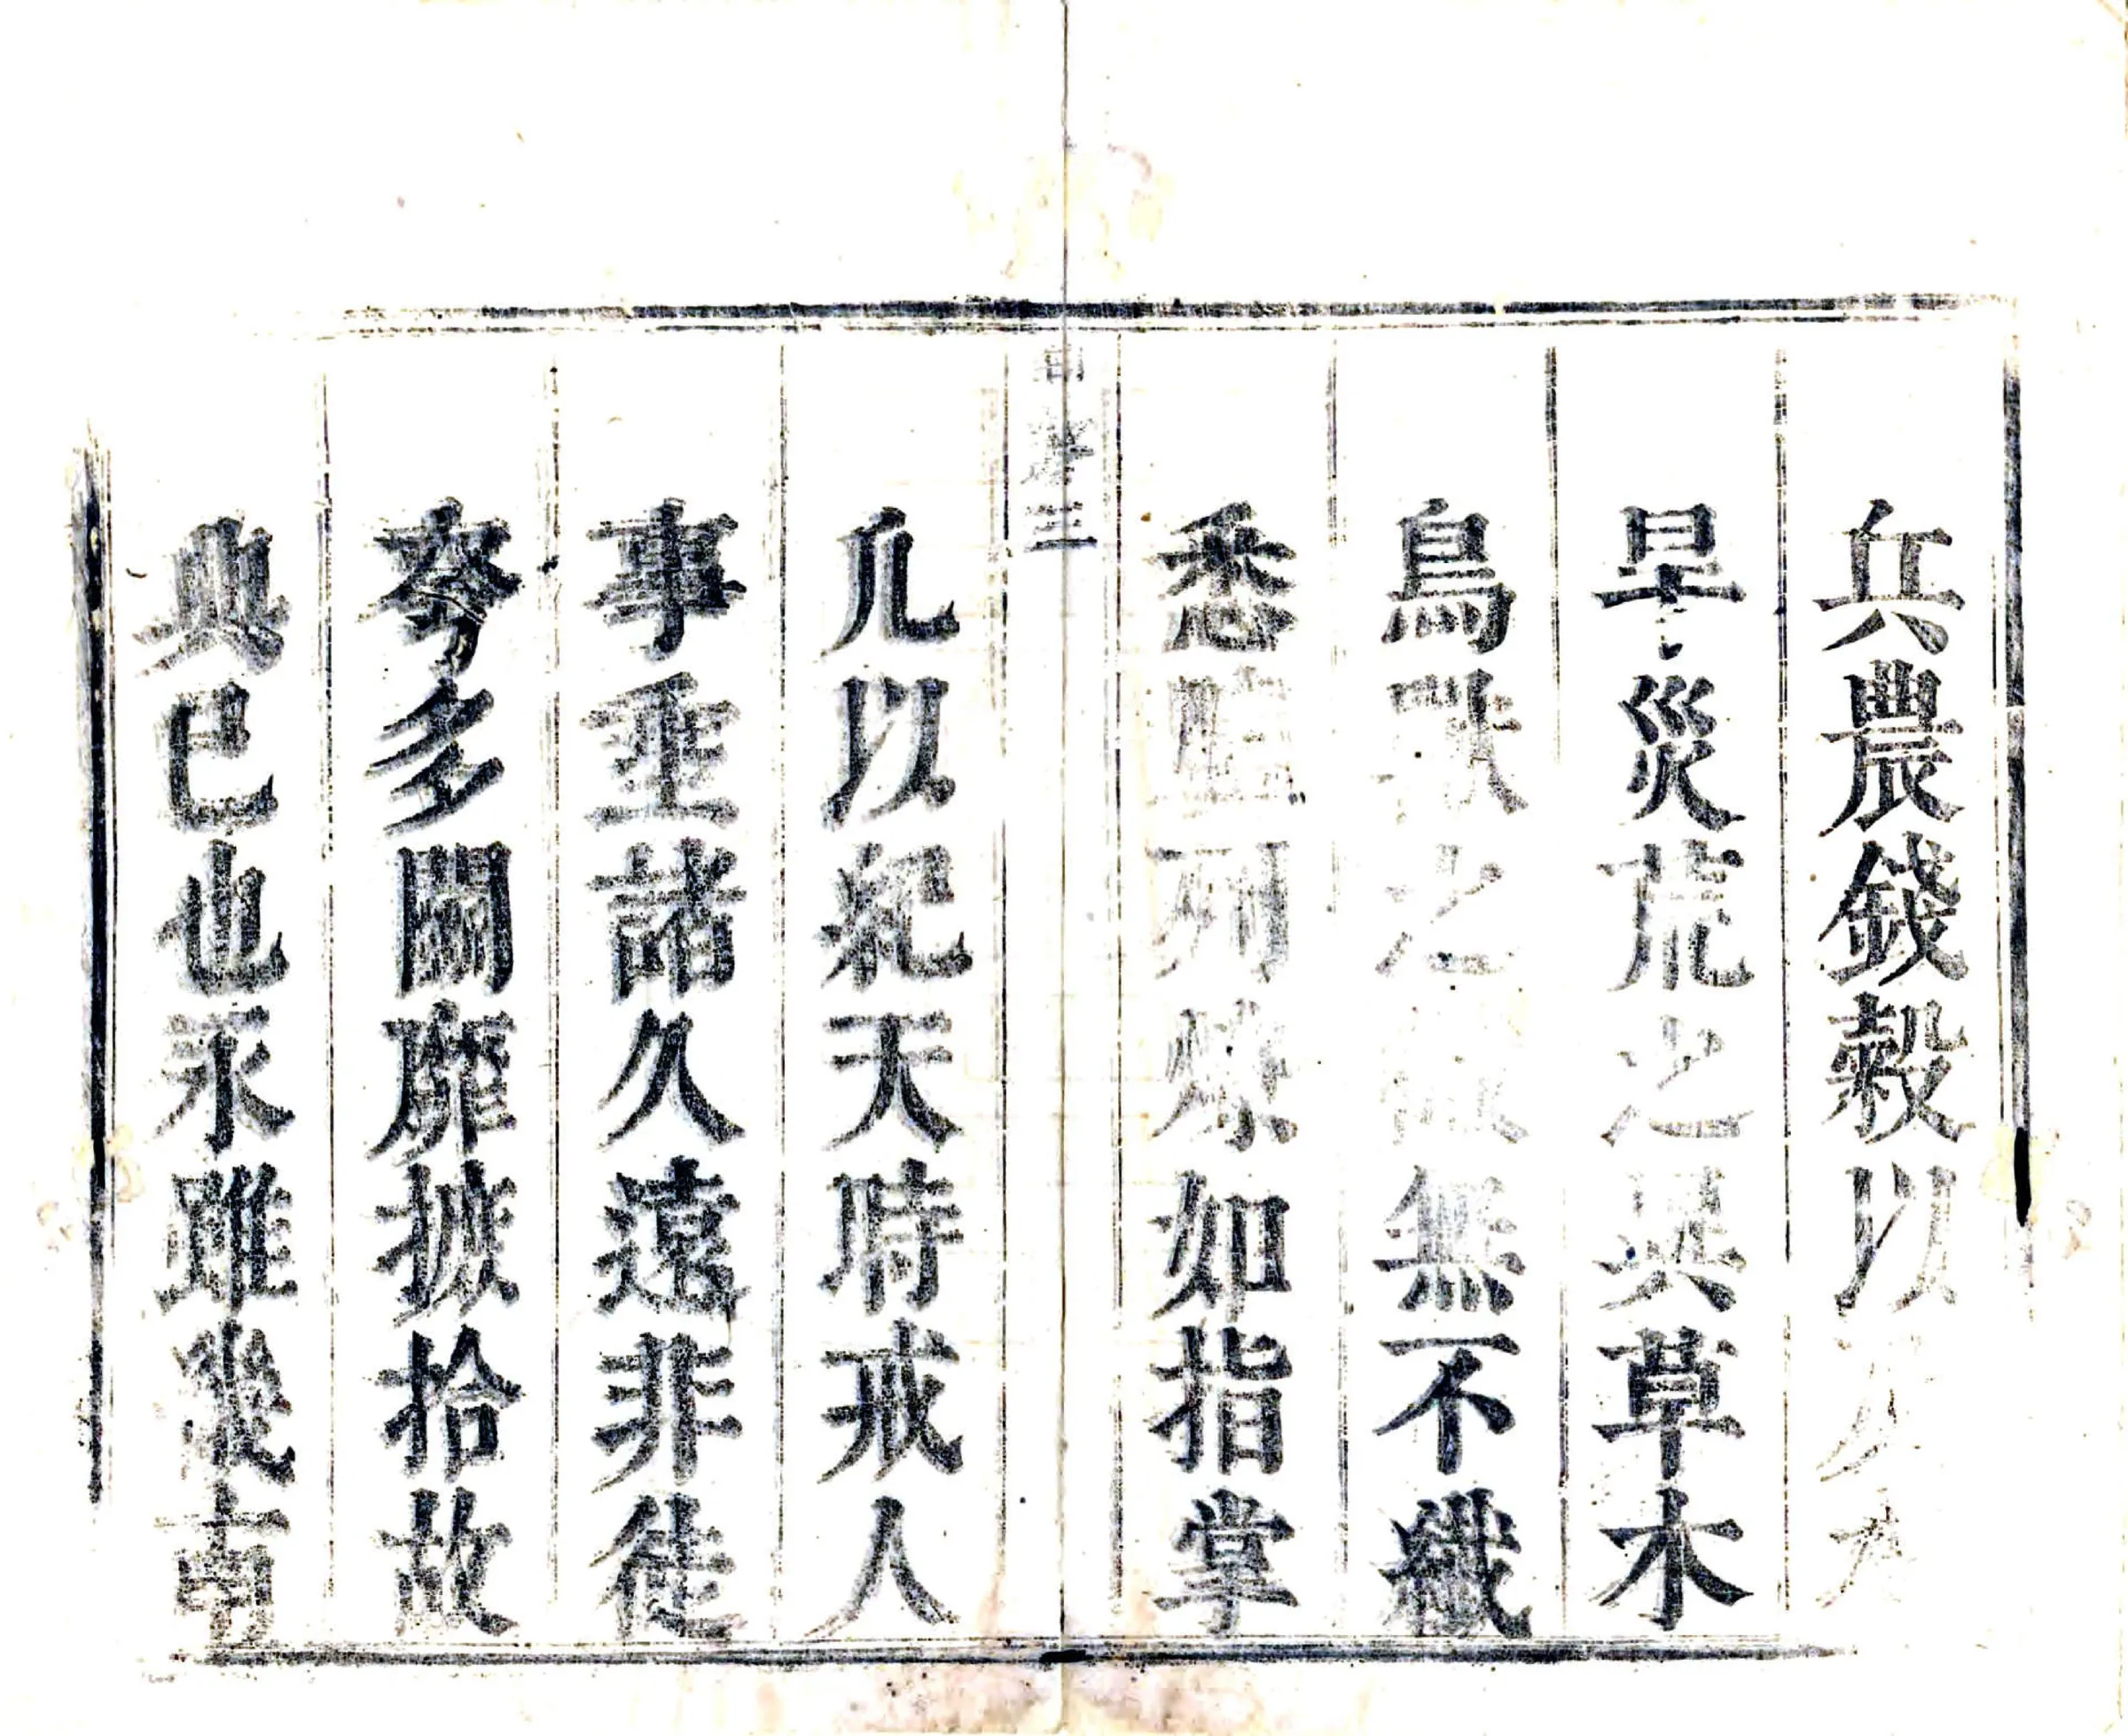 兵農錢穀以
旱災荒之異草木
鳥獸之無不纖
悉臚列燎如指掌
三
凡以紀天時戒人
事垂諸久遠非徒
夸多鬬靡摭拾故
典已也永雖南